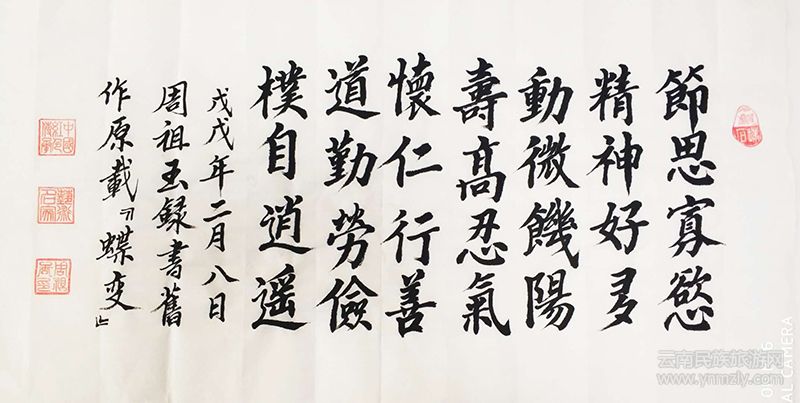 節思寡慾
精神好多
動微饑陽
壽高忍氣
懷仁行善
道勤勞儉
樸自逍遥
戊戌年二月八日
周祖玉録書舊
作原載『蝶变』
云南民族旅游网
www.ynmzly.com
AL CAMERA